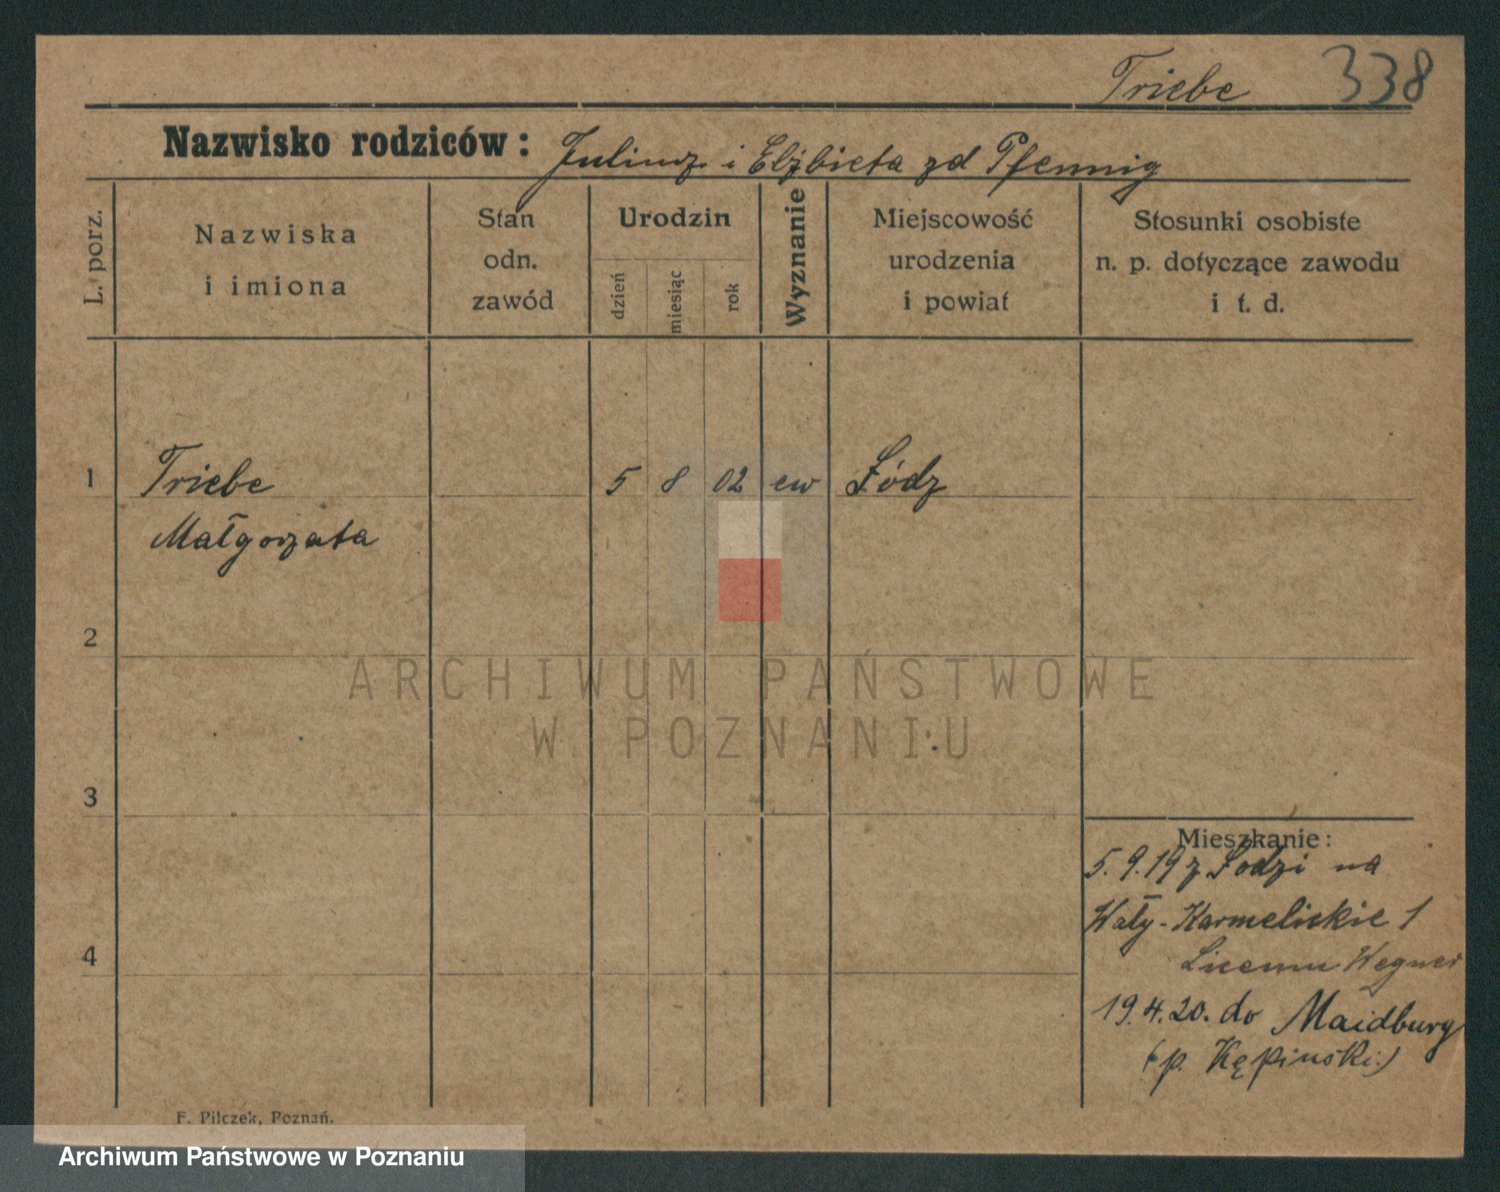 Triebe 338
Nazwisko rodziców: Juliusz i Elżbieta zd Pfennig
L. porz.
Nazwiska
i imiona
Stan
odn.
zawód
Urodzin
dzień
miesiąc
rok
Wyznanie
Miejscowość
urodzenia
i powiat
Stosunki osobiste
n. p. dotyczące zawodu
i t. d.
1 Triebe 5 8 02 ew Łódz
Małgorzata
2
ARCHIWUM PAŃSTWOWE
W POZNANIU
3
Mieszkanie:
5.9.19 z Łodzi na
Wały-Karmelickie 1
Liceum Wegner
4
19.4.20. do Maidburg
(p. Kępinski:)
F. Pilczek, Poznań.
Archiwum Państwowe w Poznaniu